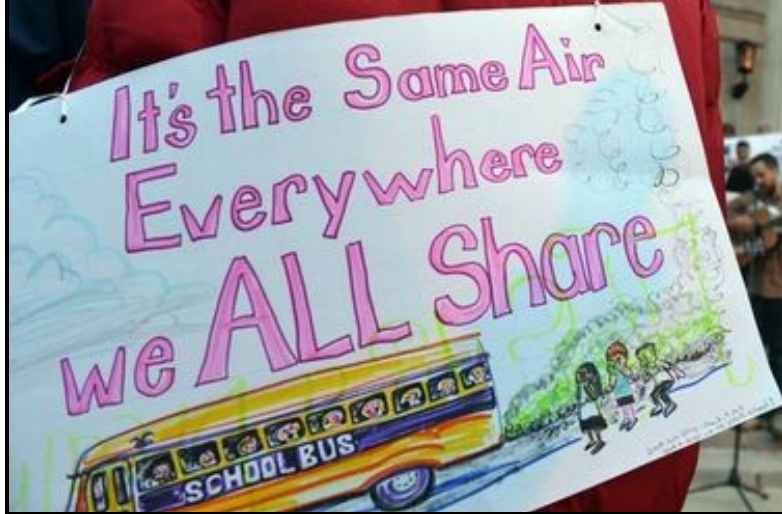 It's the Same Air
Everywhere
we ALL Share
SCHOOL BUS